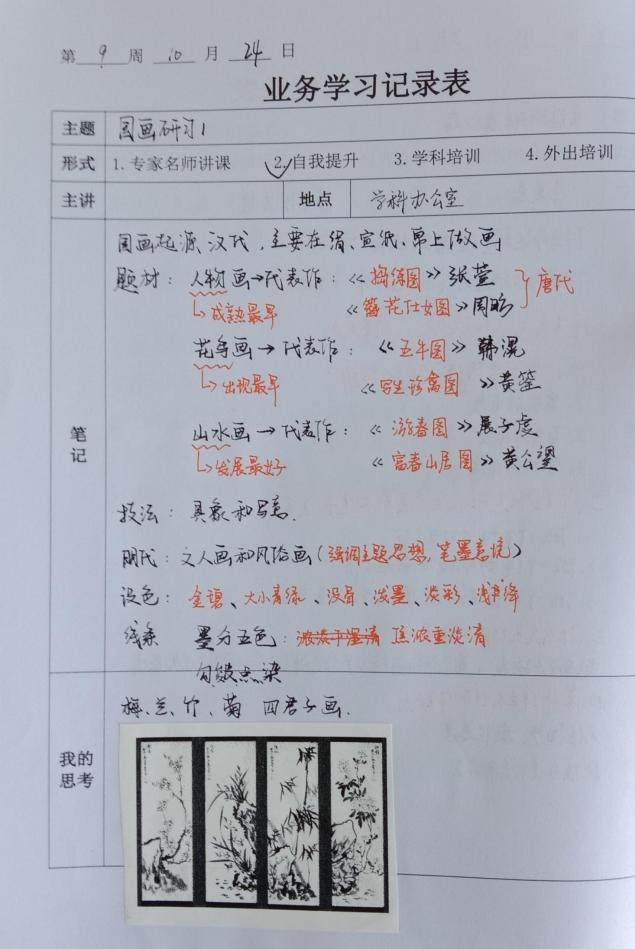 第 9 周 10 月 24 日
业务学习记录表
主题 国画研习1
形式 1.专家名师讲课 2.自我提升 3.学科培训 4.外出培训
主讲 地点 学科办公室
笔记
国画起源汉代，主要在绢、宣纸、帛上做画
题材：人物画→代表作：《捣练图》张萱 }唐代
↳成熟最早 《簪花仕女图》周昉
花鸟画→代表作：《五牛图》韩滉
↳出现最早 《写生珍禽图》黄筌
山水画→代表作：《游春图》展子虔
↳发展最好 《富春山居图》黄公望
技法：具象和写意.
明代：文人画和风俗画(强调主题思想,笔墨意境)
设色：金碧、大小青绿、没骨、泼墨、淡彩、浅绛
线条 墨分五色：浓淡干湿清 焦浓重淡清
勾皴点染
我的思考
梅、兰、竹、菊 四君子画.